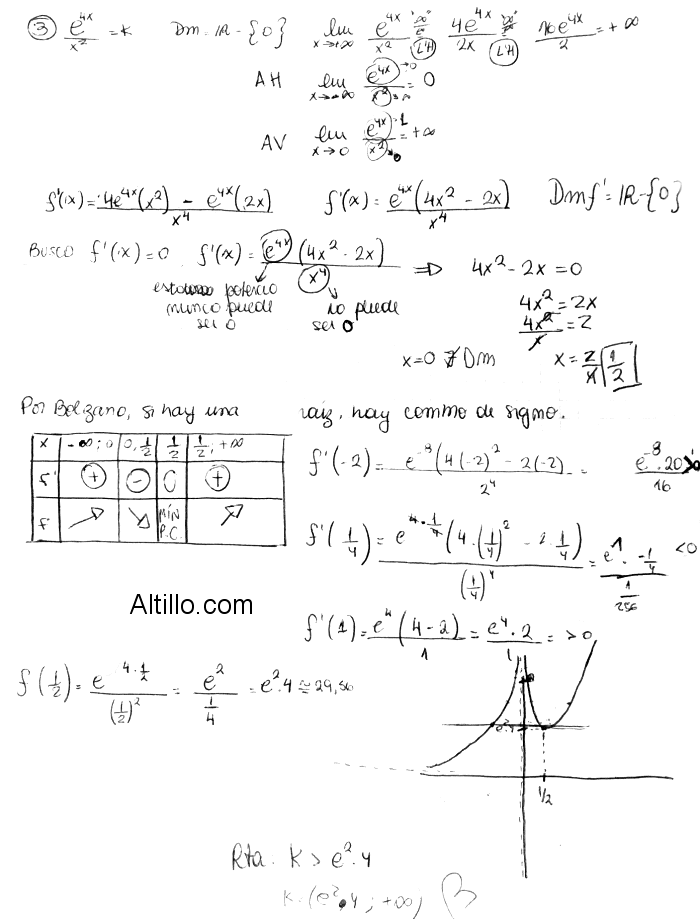 ③ e^4x/x² = K Dm = IR - {0} lim x→+∞ e^4x/x² "∞/∞" L'H 4e^4x/2x "∞/∞" L'H 16e^4x/2 = +∞
AH lim x→-∞ e^4x→0/x²→∞ = 0
AV lim x→0 e^4x→1/x²→0 = +∞
f'(x) = 4e^4x(x²) - e^4x(2x)/x⁴ f'(x) = e^4x(4x² - 2x)/x⁴ Dmf' = IR - {0}
Busco f'(x) = 0 f'(x) = e^4x(4x² - 2x)/x⁴ ⇒ 4x² - 2x = 0
potencia nunca puede ser 0
no puede ser 0
4x² = 2x
4x²/x = 2
x = 0 ∄ Dm x = 2/4 1/2
Por Bolzano, si hay una raíz, hay cambio de signo.
x -∞; 0 0, 1/2 1/2 1/2; +∞
f' + - 0 +
f ↗ ↘ MÍN P.C. ↗
f'(-2) = e^-8(4(-2)² - 2(-2))/2⁴ = e^-8.20/16 >0
f'(1/4) = e^4.1/4(4.(1/4)² - 2.1/4)/(1/4)⁴ = e^1. -1/4/1/256 <0
Altillo.com
f'(1) = e⁴(4-2)/1 = e⁴.2/1 = >0
f(1/2) = e^4.1/2/(1/2)² = e²/1/4 = e².4 ≅ 29,56
e².4
1/2
Rta: K > e².4
K = (e².4; +∞)
B